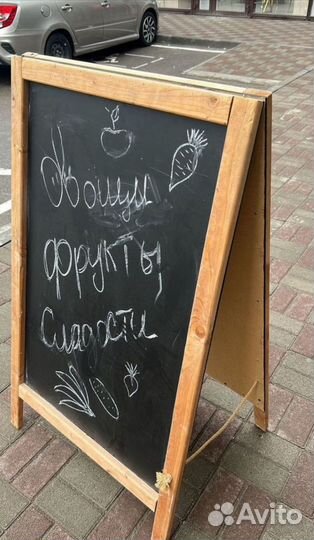 Овощи
фрукты
сладости
Avito